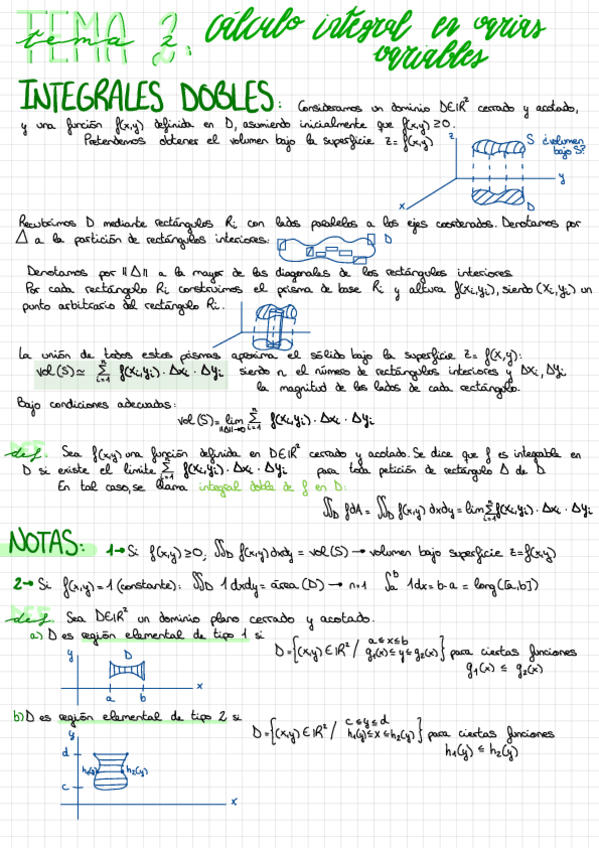 TEMA 2: cálculo integral en varias
variables
INTEGRALES DOBLES: Consideramos un dominio D∈IR² cerrado y acotado,
y una función f(x,y) definida en D, asumiendo inicialmente que f(x,y) ≥ 0.
Pretendemos obtener el volumen bajo la superficie z = f(x,y)
z
S ¿volumen
bajo S?
y
x
D
Recubrimos D mediante rectángulos Ri con lados paralelos a los ejes coordenados. Denotamos por
Δ a la partición de rectángulos interiores:
D
Denotamos por ||Δ|| a la mayor de las diagonales de los rectángulos interiores
Por cada rectángulo Ri construimos el prisma de base Ri y altura f(xi,yi), siendo (xi,yi) un
punto arbitrario del rectángulo Ri.
La unión de todos estos prismas aproxima el sólido bajo la superficie z = f(x,y):
vol(S) ≃ Σ_{i=1}^{n} f(xi,yi) · Δxi · Δyi siendo n el número de rectángulos interiores y Δxi, Δyi
la magnitud de los lados de cada rectángulo.
Bajo condiciones adecuadas:
vol(S) = lim_{||Δ||→0} Σ_{i=1}^{n} f(xi,yi) · Δxi · Δyi
def. Sea f(x,y) una función definida en D∈IR² cerrado y acotado. Se dice que f es integrable en
D si existe el limite Σ_{i=1}^{n} f(xi,yi) · Δxi · Δyi para toda petición de rectángulo Δ de D
En tal caso, se llama integral doble de f en D:
∬_D f dA = ∬_D f(x,y) dxdy = lim Σ_{i=1}^{n} f(xi,yi) · Δxi · Δyi
NOTAS: 1→ Si f(x,y) ≥ 0, ∬_D f(x,y) dxdy = vol(S) → volumen bajo superficie z = f(x,y)
2→ Si f(x,y) = 1 (constante): ∬_D 1 dxdy = área (D) → n=1 ∫_a^b 1dx = b-a = long([a,b])
def. Sea D∈IR² un dominio plano cerrado y acotado.
a) D es región elemental de tipo 1 si D = {(x,y) ∈ IR² / a ≤ x ≤ b g₁(x) ≤ y ≤ g₂(x)} para ciertas funciones
g₁(x) ≤ g₂(x)
y
D
x
a b
b) D es región elemental de tipo 2 si D = {(x,y) ∈ IR² / c ≤ y ≤ d h₁(y) ≤ x ≤ h₂(y)} para ciertas funciones
h₁(y) ≤ h₂(y)
y
d
h₁(y) h₂(y)
c
x